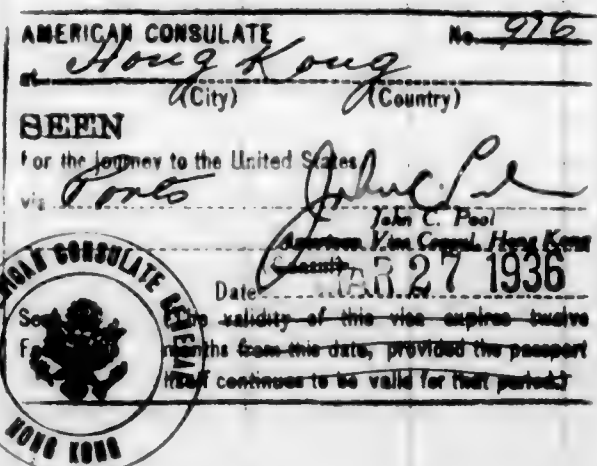 AMERICAN CONSULATE No. 926
at Hong Kong
(City) (Country)
SEEN
For the journey to the United States
via Ports
John C. Pool
American Vice Consul, Hong Kong
Date MAR 27 1936
The validity of this visa expires twelve
months from this date, provided the passport
itself continues to be valid for that period.)
AMERICAN CONSULATE GENERAL
HONG KONG